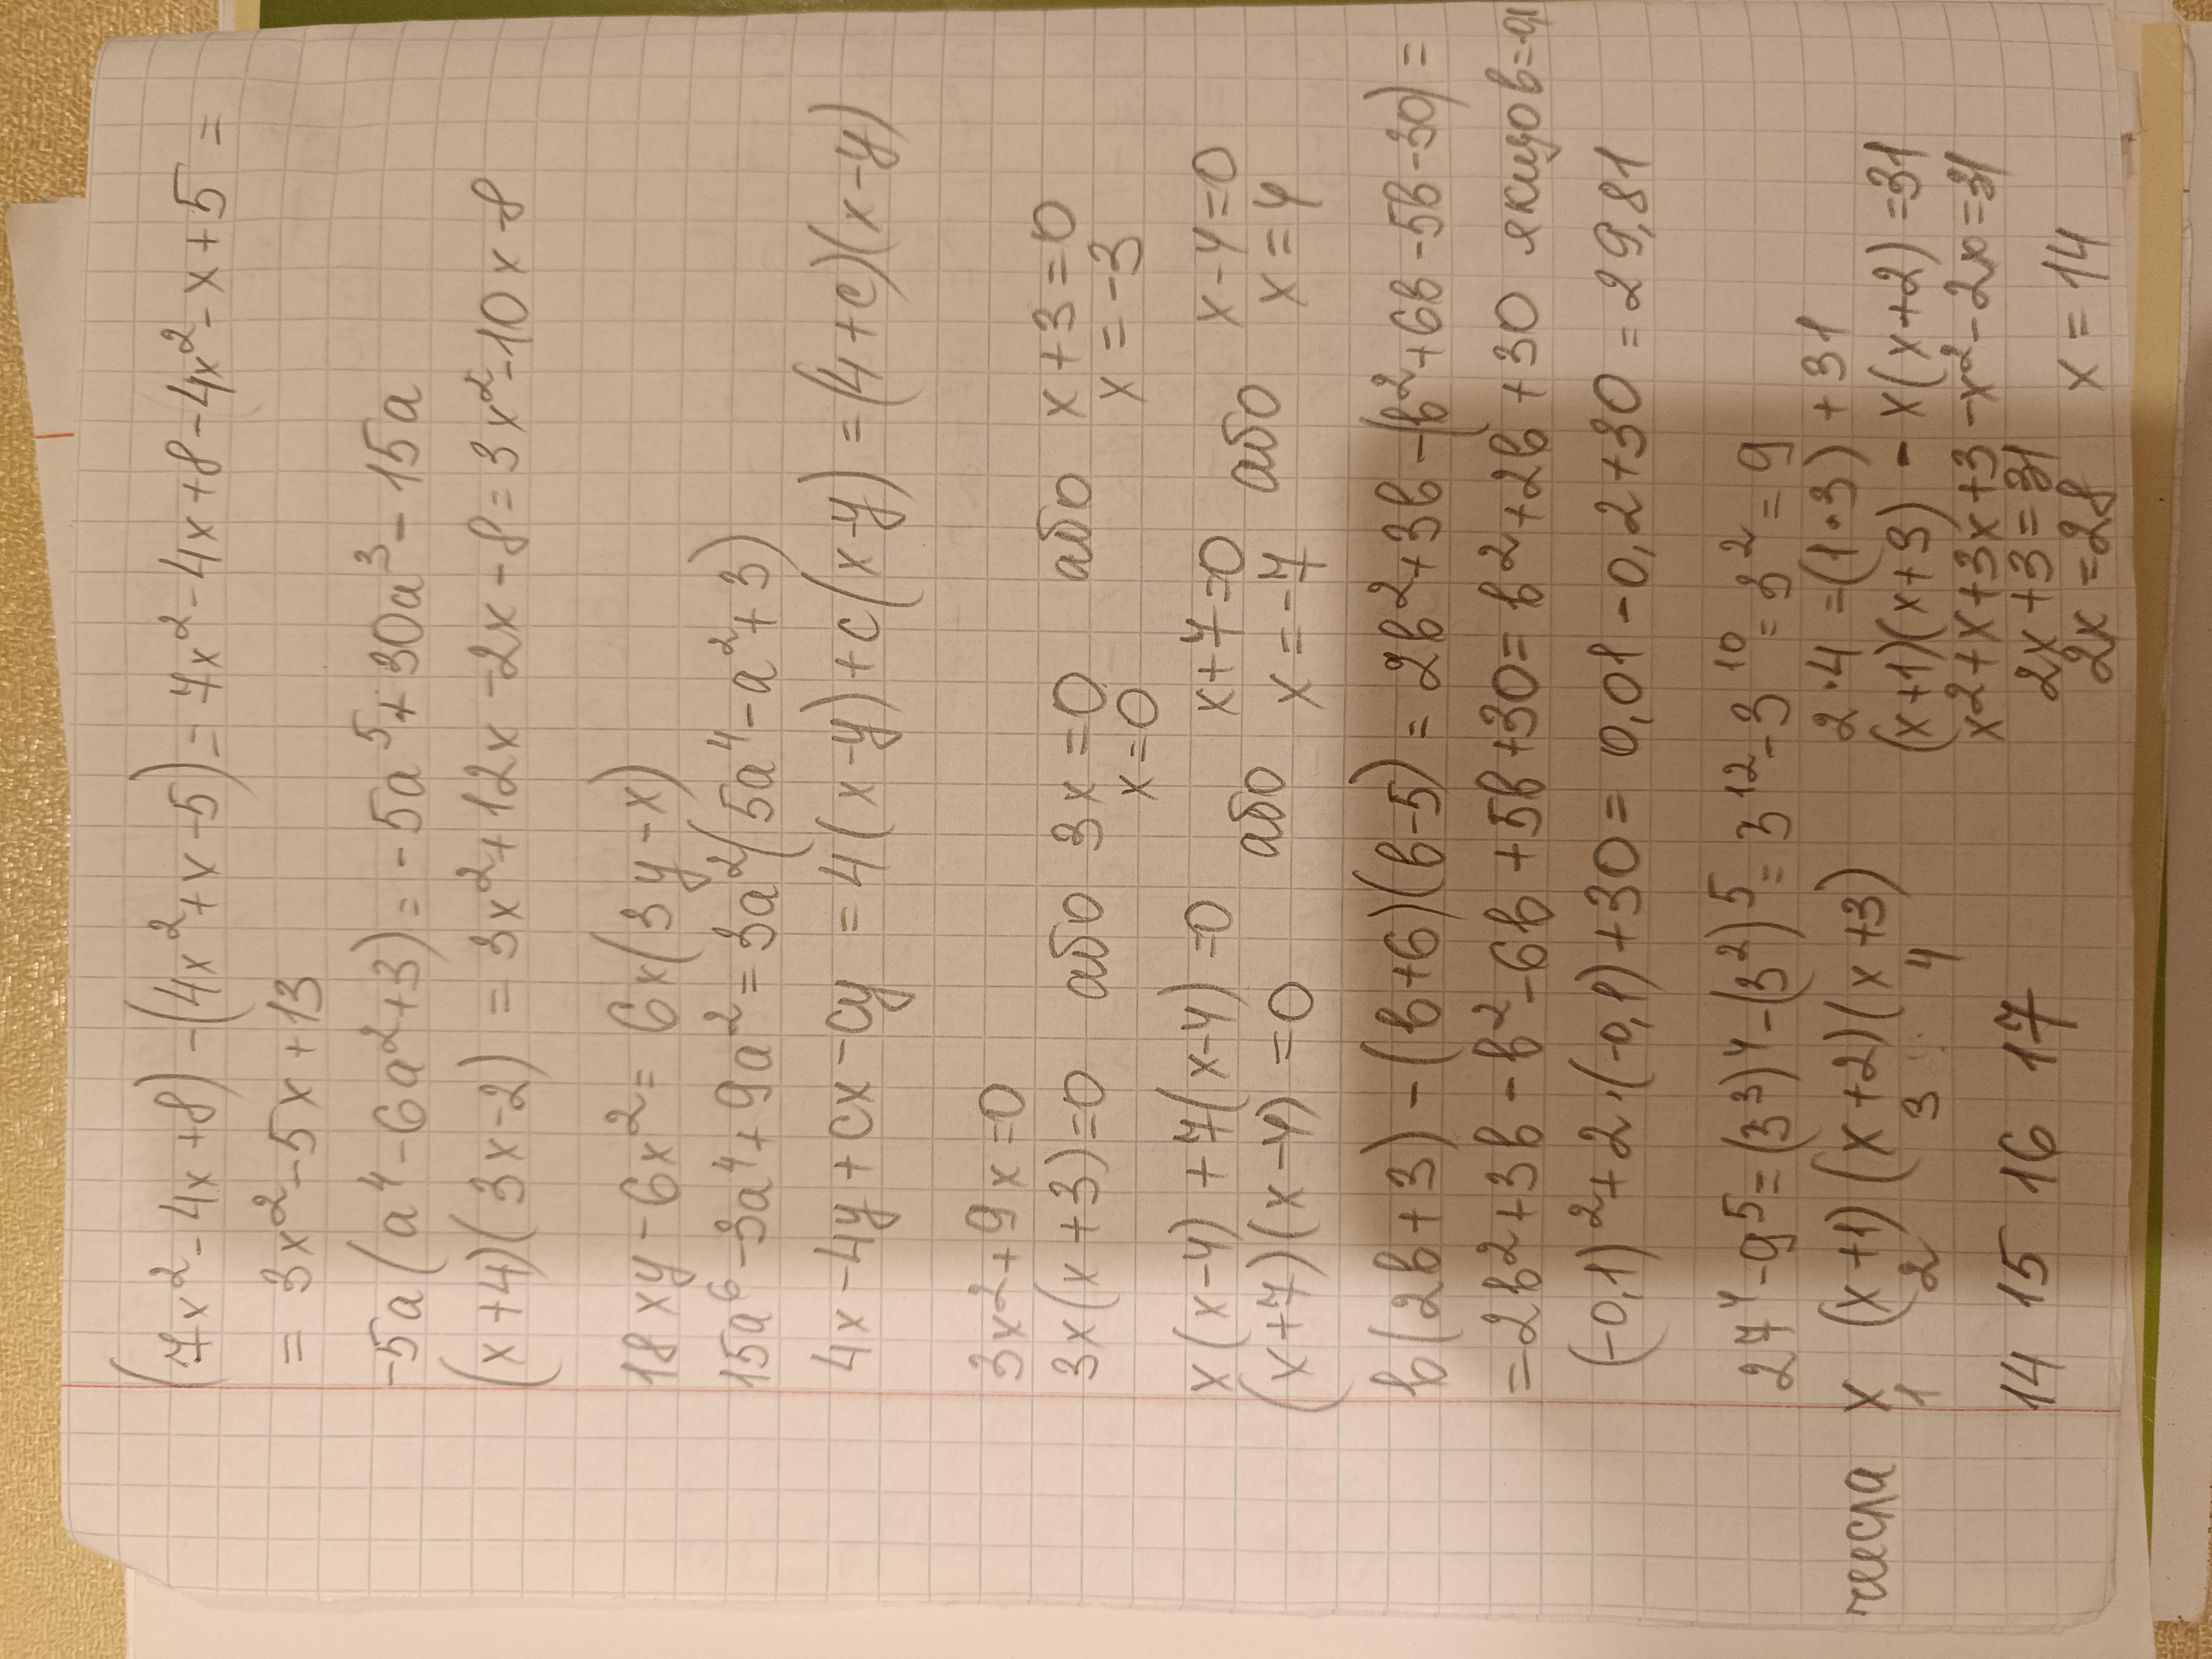 (7x² - 4x + 8) - (4x² + x - 5) = 7x² - 4x + 8 - 4x² - x + 5 =
= 3x² - 5x + 13
-5a(a⁴ - 6a² + 3) = -5a⁵ + 30a³ - 15a
(x + 4)(3x - 2) = 3x² + 12x - 2x - 8 = 3x² - 10x - 8
18xy - 6x² = 6x(3y - x)
15a⁶ - 3a⁴ + 9a² = 3a²(5a⁴ - a² + 3)
4x - 4y + cx - cy = 4(x - y) + c(x - y) = (4 + c)(x - y)
3x² + 9x = 0
3x(x + 3) = 0 або 3x = 0 або x + 3 = 0
x = 0 x = -3
x(x - 4) + 7(x - 4) = 0 x + 7 = 0 x - 4 = 0
(x + 7)(x - 4) = 0 або x = -7 або x = 4
b(2b + 3) - (b + 6)(b - 5) = 2b² + 3b - (b² + 6b - 5b - 30) =
= 2b² + 3b - b² - 6b + 5b + 30 = b² + 2b + 30 якщо b = -0,1
(-0,1)² + 2·(-0,1) + 30 = 0,01 - 0,2 + 30 = 29,81
27⁴ - 9⁵ = (3³)⁴ - (3²)⁵ = 3¹² - 3¹⁰ = 3² = 9
числа x (x + 1) (x + 2) (x + 3) 2·4 = (1·3) + 31
1 2 3 4 (x + 1)(x + 3) - x(x + 2) = 31
x² + x + 3x + 3 - x² - 2x = 31
14 15 16 17 2x + 3 = 31
2x = 28 x = 14